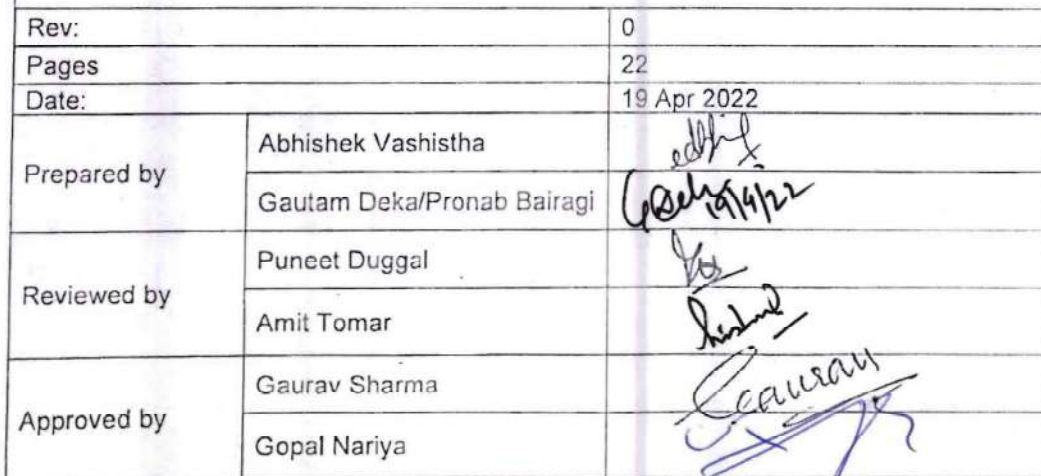 Rev: 0
Pages 22
Date: 19 Apr 2022
Prepared by
Abhishek Vashistha
Gautam Deka/Pronab Bairagi 19/4/22
Reviewed by
Puneet Duggal
Amit Tomar
Approved by
Gaurav Sharma Gaurav
Gopal Nariya